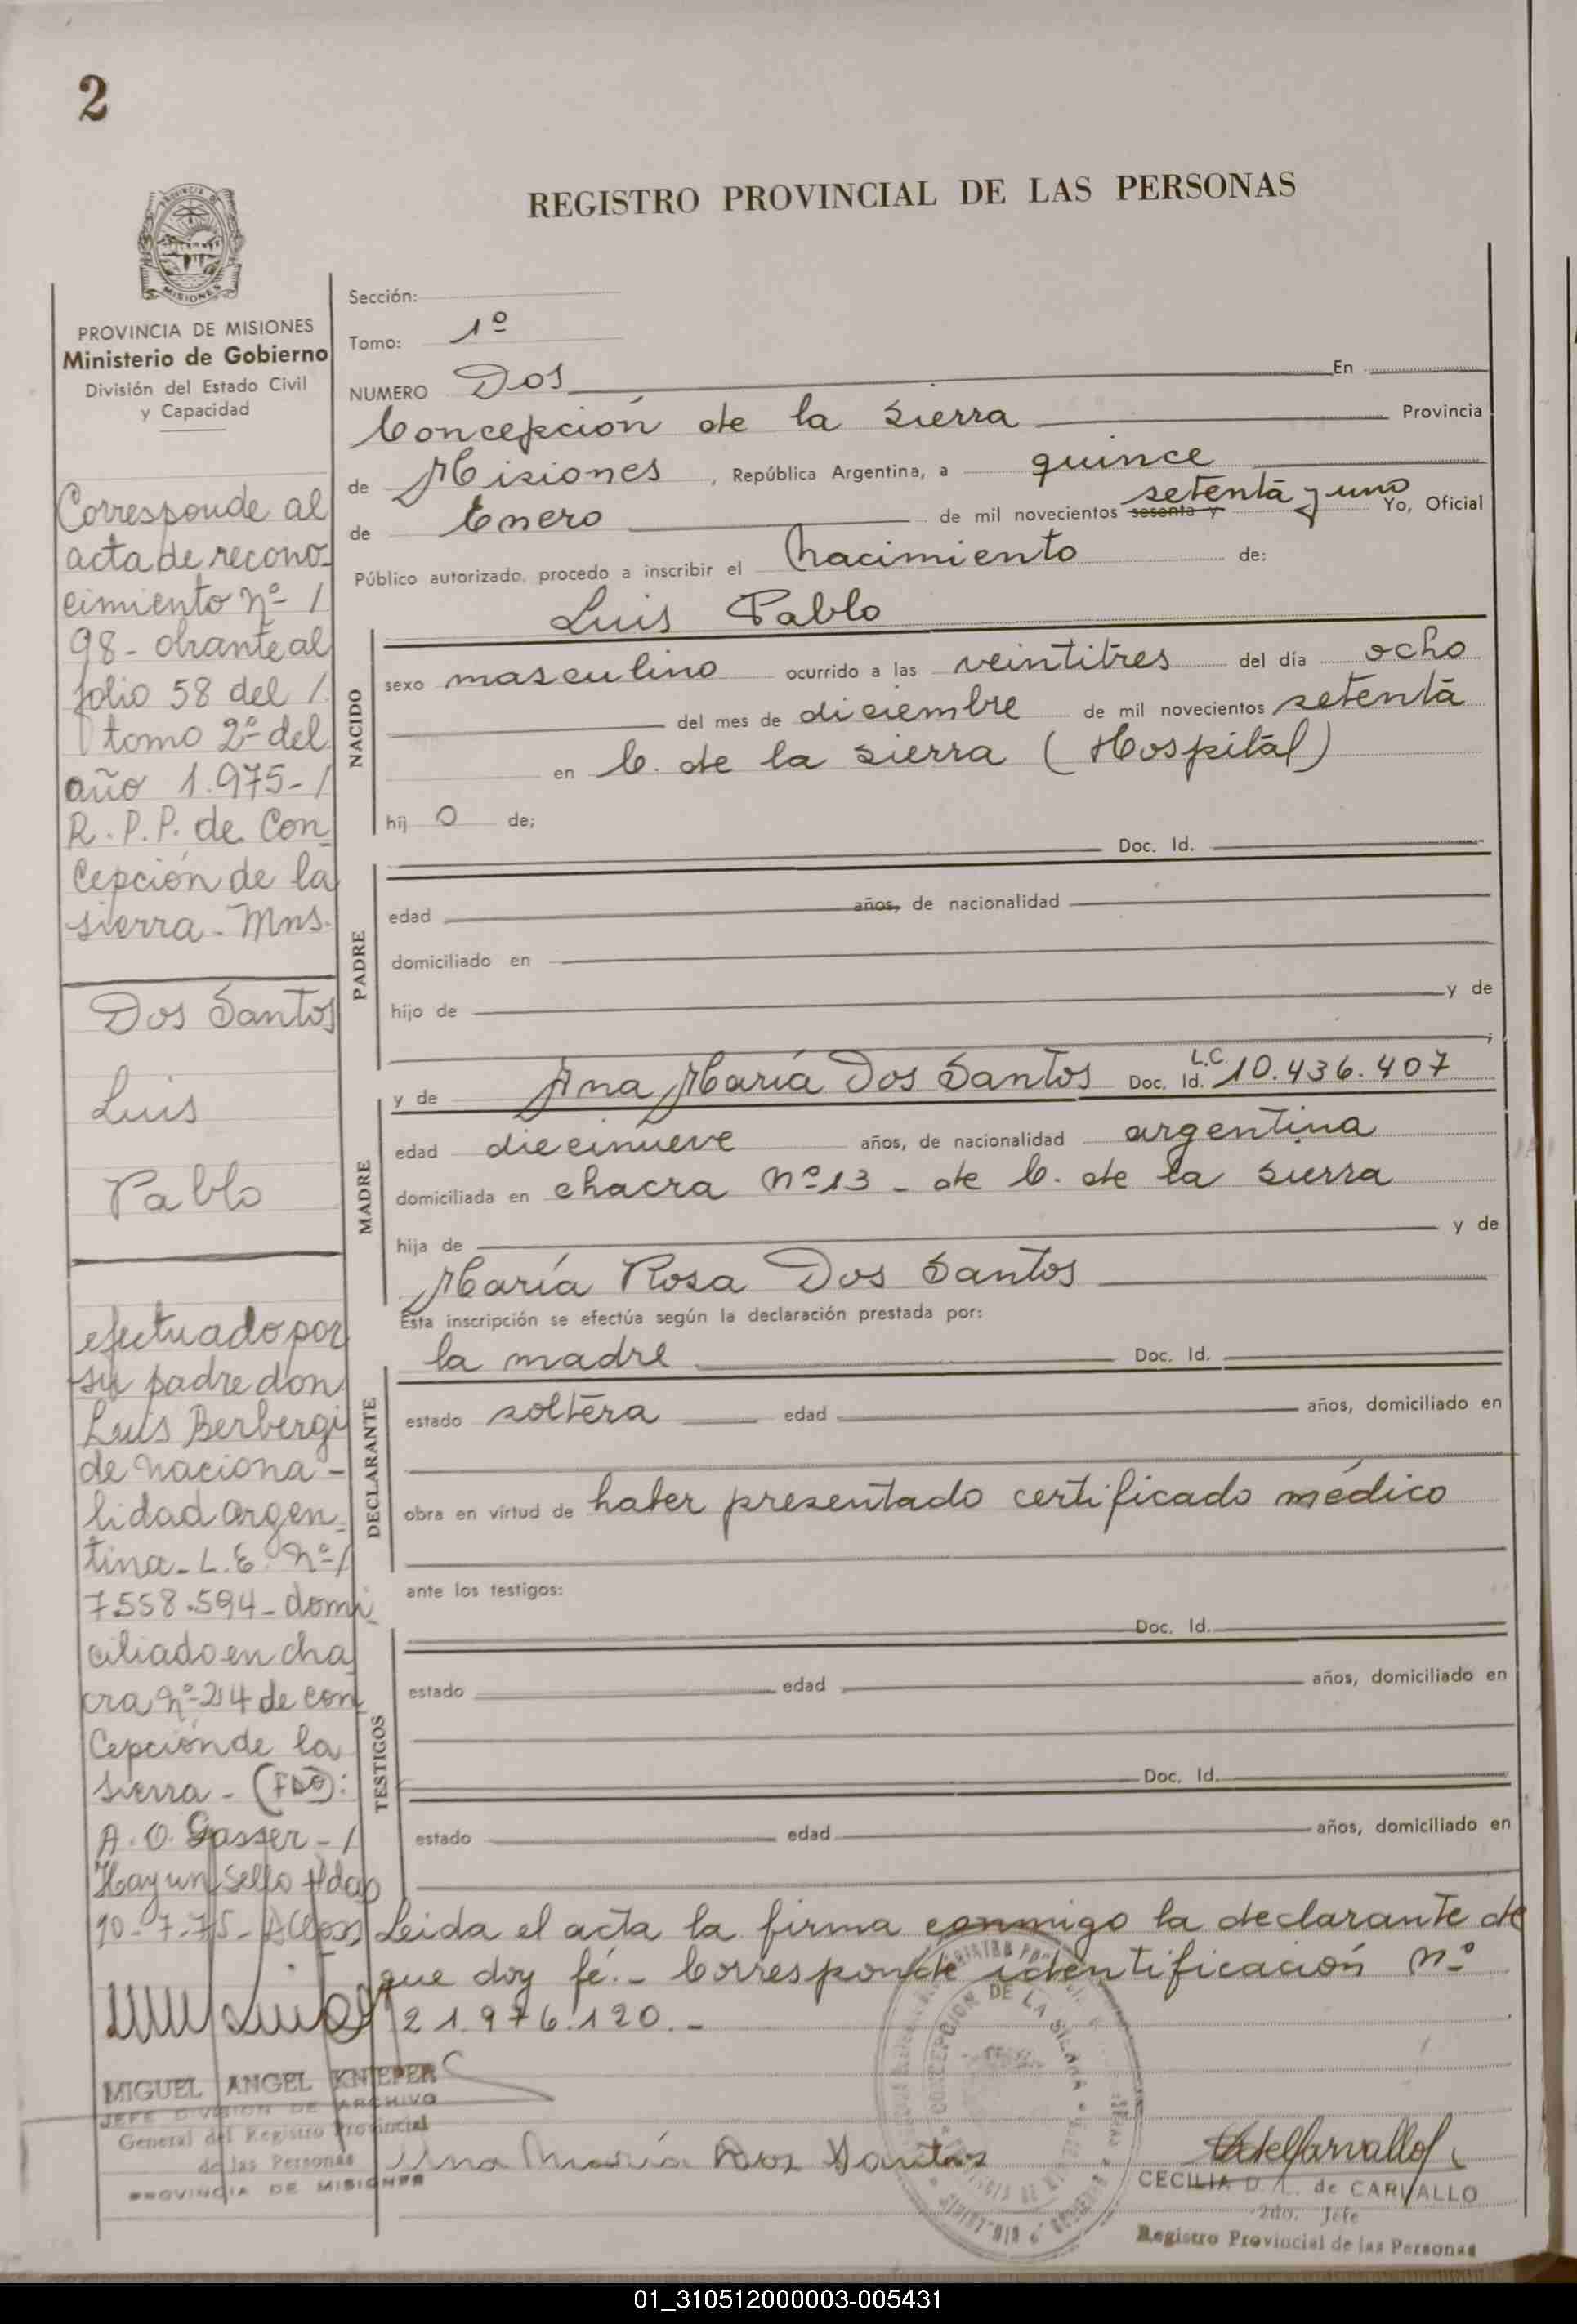 2
REGISTRO PROVINCIAL DE LAS PERSONAS
MISIONES
PROVINCIA DE MISIONES
Ministerio de Gobierno
División del Estado Civil
y Capacidad
Corresponde al
acta de recono-
cimiento nº /
98 - obrante al
folio 58 del /
tomo 2º del
año 1.975 - /
R. P. P. de Con
cepción de la
sierra - Mns.
Dos Santos
Luis
Pablo
efectuado por
su padre don
Luis Berbergi
de naciona -
lidad argen -
tina - L. E. nº /
7.558.594 - domi
ciliado en cha
cra nº 214 de con
cepción de la
sierra - (FDO):
A. O. Gasser - /
Hay un sello
10 - 7 - 75 -
MIGUEL ANGEL KNIEPER
JEFE DIVISION DE ARCHIVO
General del Registro Provincial
de las Personas
PROVINCIA DE MISIONES
Sección:
Tomo: 1º
NUMERO Dos En
Concepción de la Sierra Provincia
de Misiones , República Argentina, a quince
de Enero de mil novecientos sesenta y setenta y uno Yo, Oficial
Público autorizado, procedo a inscribir el nacimiento de:
Luis Pablo
NACIDO
sexo masculino ocurrido a las veintitres del día ocho
del mes de diciembre de mil novecientos setenta
en C. de la Sierra (Hospital)
hij o de;
Doc. Id.
PADRE
edad años, de nacionalidad
domiciliado en
hijo de y de
y de Ana María Dos Santos Doc. Id. L.C. 10.436.407
MADRE
edad diecinueve años, de nacionalidad argentina
domiciliada en chacra nº 13 - de C. de la Sierra
hija de y de
María Rosa Dos Santos
Esta inscripción se efectúa según la declaración prestada por:
la madre Doc. Id.
DECLARANTE
estado soltera edad años, domiciliado en
obra en virtud de haber presentado certificado médico
ante los testigos:
Doc. Id.
TESTIGOS
estado edad años, domiciliado en
Doc. Id.
estado edad años, domiciliado en
Leida el acta la firma conmigo la declarante de
que doy fé. - Corresponde identificación nº
21.976.120. -
CONCEPCION DE LA SIERRA
Ana María Dos Santos
CECILIA D. L. de CARVALLO
2do. Jefe
Registro Provincial de las Personas
01_310512000003-005431